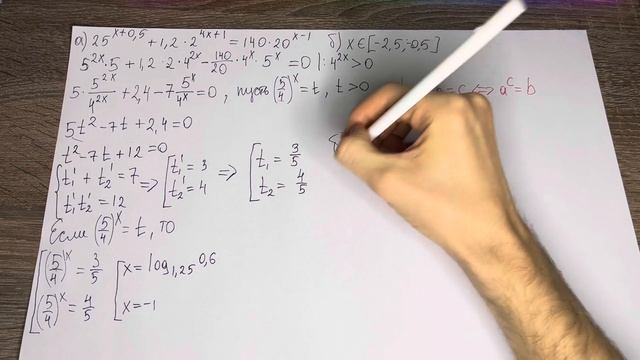 а) 25^{x+0,5} + 1,2 · 2^{4x+1} = 140 · 20^{x-1} б) x ∈ [-2,5;-0,5]
5^{2x} · 5 + 1,2 · 2 · 4^{2x} - \frac{140}{20} · 4^x · 5^x = 0 |: 4^{2x} > 0
5 · \frac{5^{2x}}{4^{2x}} + 2,4 - 7 \frac{5^x}{4^x} = 0, пусть (\frac{5}{4})^x = t, t > 0
= c ⟺ a^c = b
5t^2 - 7t + 2,4 = 0
t^2 - 7t + 12 = 0
{ t_1' + t_2' = 7
t_1' t_2' = 12
⇒ [ t_1' = 3
t_2' = 4
⇒ [ t_1 = \frac{3}{5}
t_2 = \frac{4}{5}
Если (\frac{5}{4})^x = t, то
[ (\frac{5}{4})^x = \frac{3}{5}
(\frac{5}{4})^x = \frac{4}{5}
[ x = log_{1,25} 0,6
x = -1